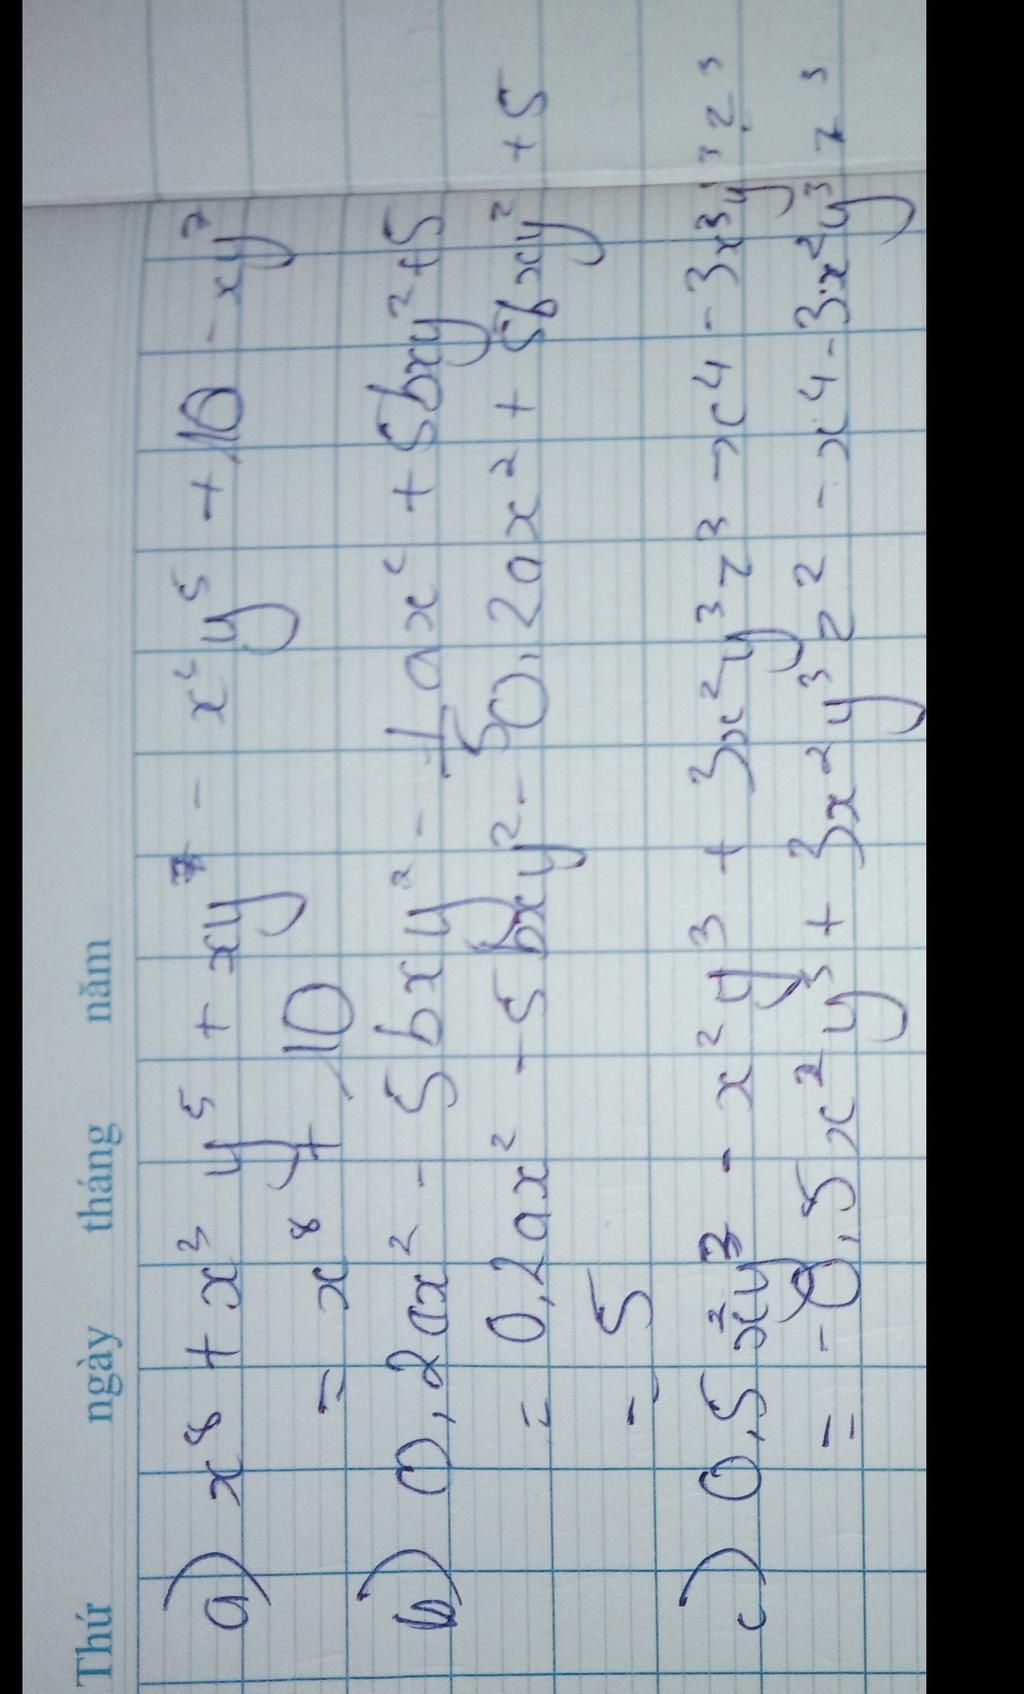 Thứ ngày tháng năm
a) x⁸ + x³y⁵ + xy⁷ - x³y⁵ + 10 - xy⁷
= x⁸ + 10
b) 0,2ax² - 5bxy² - 1/5 ax² + 5bxy² + 5
= 0,2ax² - 5bxy² - 0,2ax² + 5bxy² + 5
- 5
c) 0,5x²y³ - x²y³ + 3x²y³z³ - x⁴ - 3x³y³z³
= -0,5x²y³ + 3x²y³z² - x⁴ - 3x²y³z³